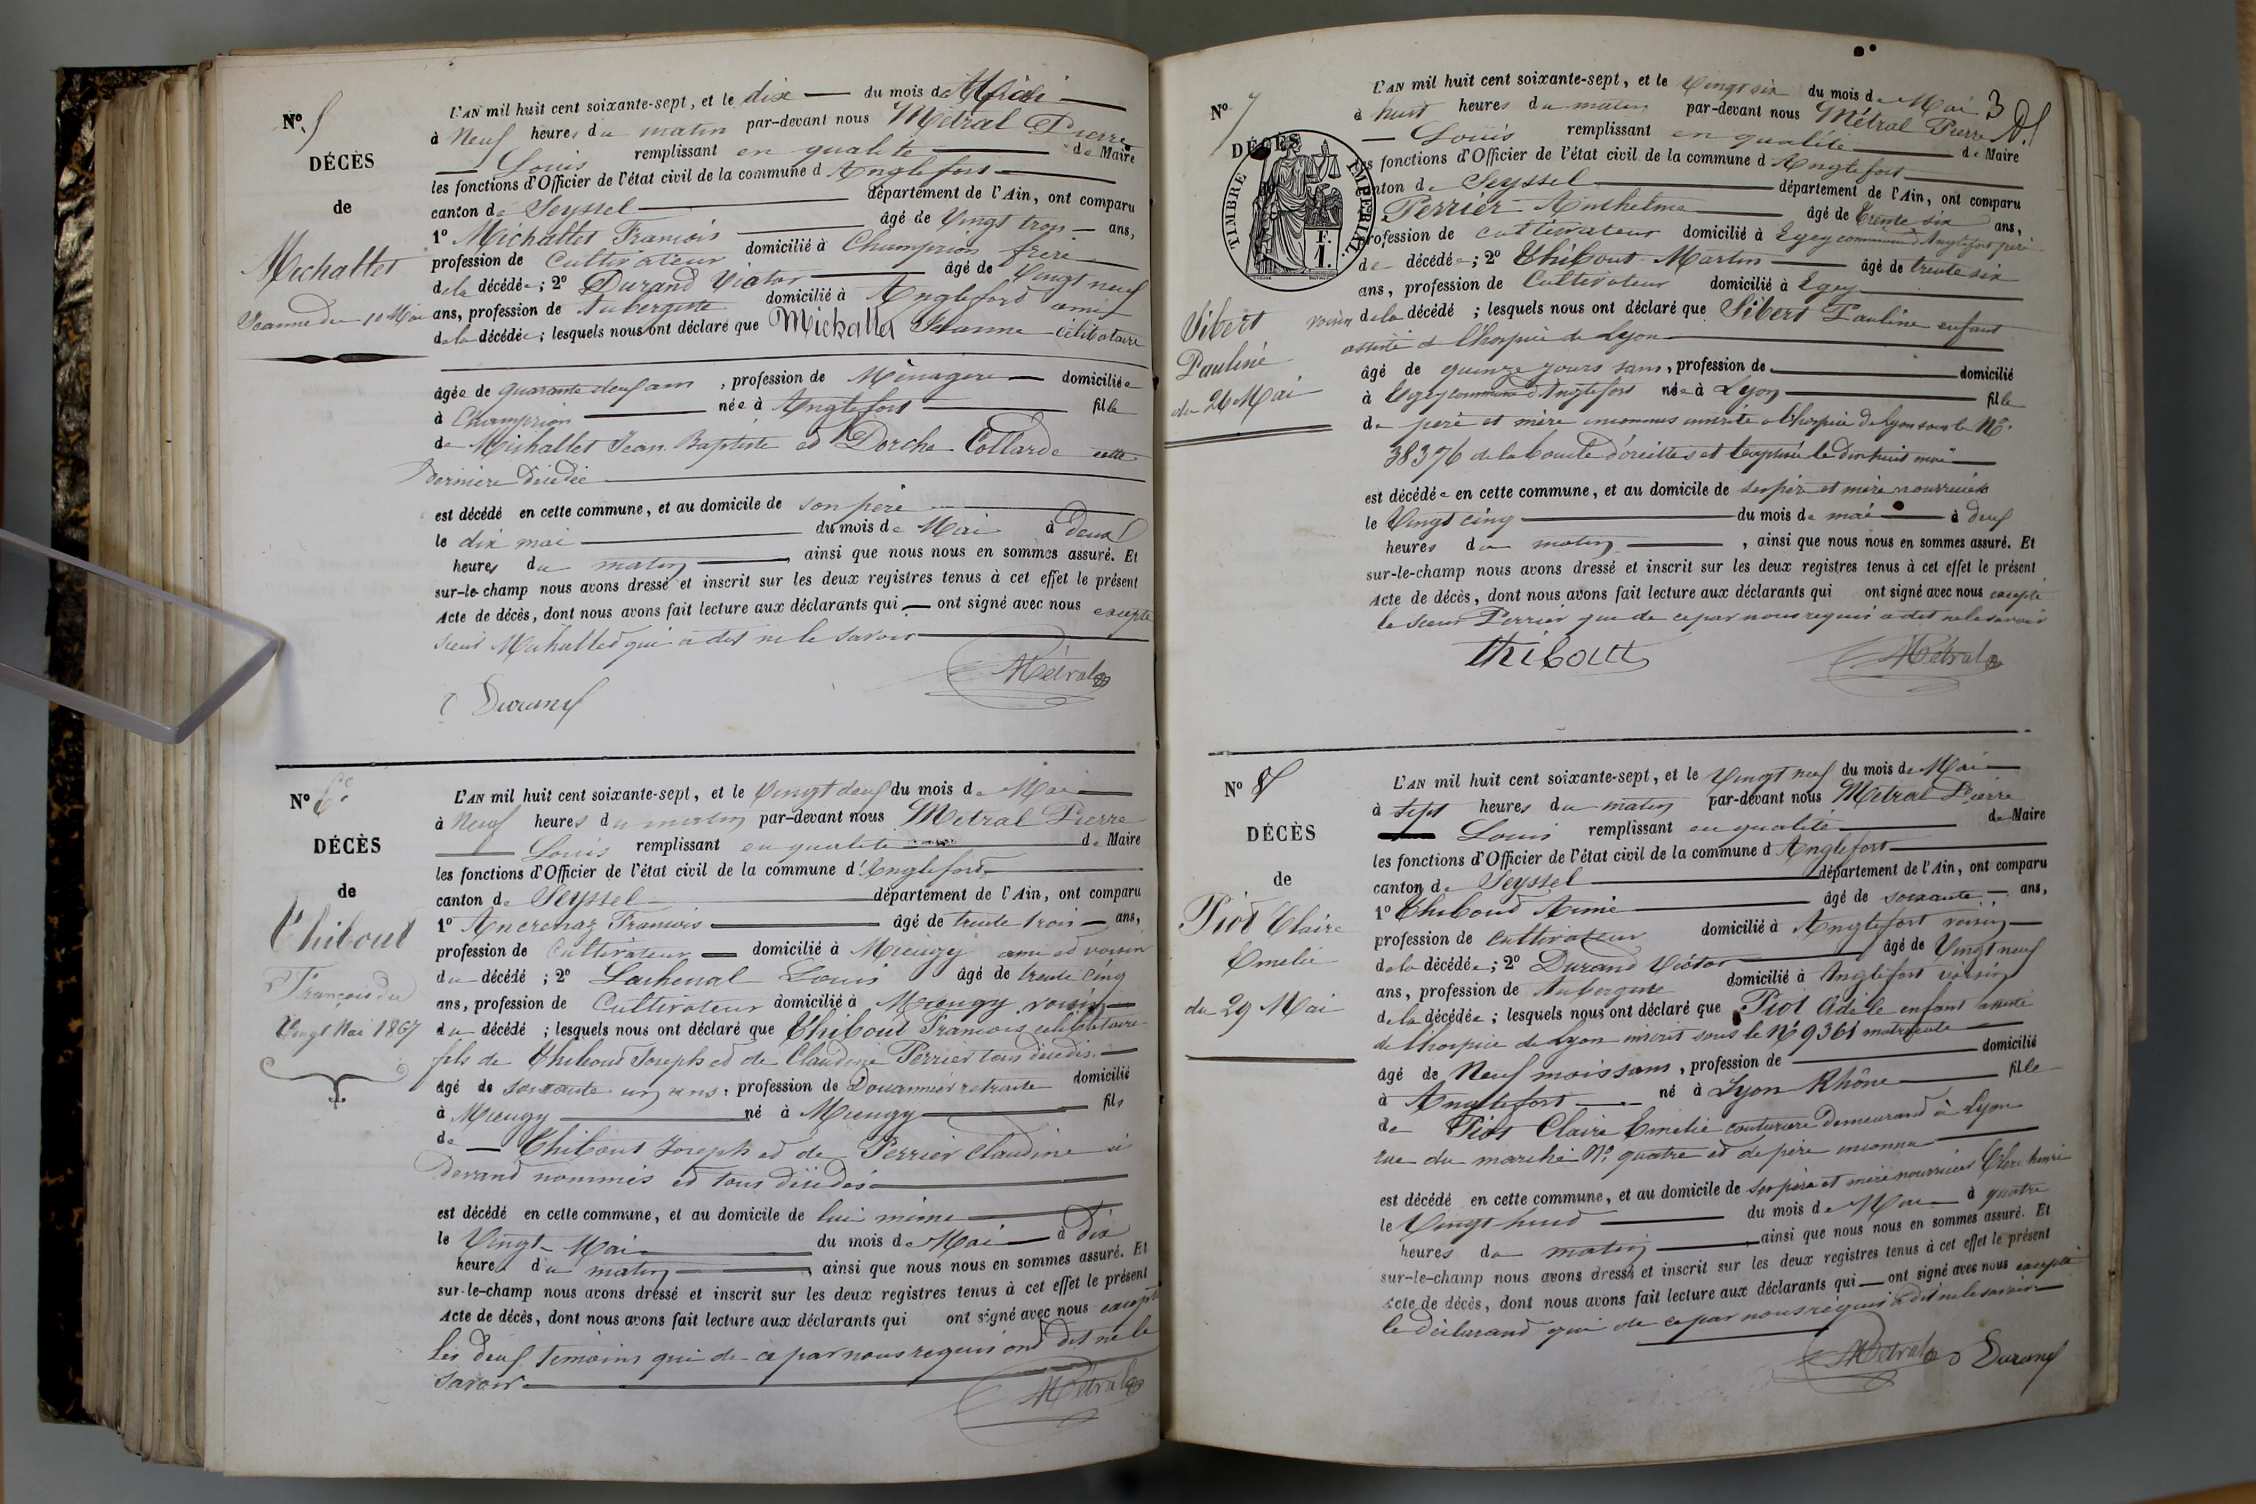 No. 5
DÉCÈS
de
Michallet
Jeanne du 10 Mai
L'AN mil huit cent soixante-sept, et le dix du mois de Mai
à Neuf heures du matin par-devant nous Métral Pierre
Louis remplissant en qualité de Maire
les fonctions d'Officier de l'état civil de la commune d'Anglefort
canton de Seyssel département de l'Ain, ont comparu
1o Michallet François âgé de Vingt trois ans,
profession de Cultivateur domicilié à Champrion frère
de la décédée; 2o Durand Victor âgé de Vingt neuf
ans, profession de Aubergiste domicilié à Anglefort ami
de la décédée; lesquels nous ont déclaré que Michallet Jeanne célibataire
âgée de quarante neuf ans, profession de Ménagère domiciliée
à Champrion née à Anglefort fille
de Michallet Jean Baptiste et Dorche Collarde cette
dernière décédée
est décédé en cette commune, et au domicile de son père
le dix mai du mois de Mai à deux
heures du matin, ainsi que nous nous en sommes assuré. Et
sur-le-champ nous avons dressé et inscrit sur les deux registres tenus à cet effet le présent
Acte de décès, dont nous avons fait lecture aux déclarants qui ont signé avec nous excepté
sieur Michallet qui a dit ne le savoir
Métral
Durand
No 6
DÉCÈS
de
Thibout
François du
Vingt Mai 1867
L'AN mil huit cent soixante-sept, et le Vingt deux du mois de Mai
à Neuf heures du matin par-devant nous Métral Pierre
Louis remplissant en qualité de Maire
les fonctions d'Officier de l'état civil de la commune d'Anglefort
canton de Seyssel département de l'Ain, ont comparu
1o Ancrenaz François âgé de trente trois ans,
profession de Cultivateur domicilié à Mieugy ami et voisin
du décédé; 2o Lachenal Louis âgé de trente cinq
ans, profession de Cultivateur domicilié à Mieugy voisin
du décédé; lesquels nous ont déclaré que Thibout François célibataire
fils de Thiboud Joseph et de Claudine Perrier tous décédés
âgé de soixante un ans, profession de Douannier retraite domicilié
à Mieugy né à Mieugy fils
de Thibout Joseph et de Perrier Claudine si
devand nommés et tous décédés
est décédé en cette commune, et au domicile de lui même
le Vingt Mai du mois de Mai à dix
heures du matin, ainsi que nous nous en sommes assuré. Et
sur-le-champ nous avons dressé et inscrit sur les deux registres tenus à cet effet le présent
Acte de décès, dont nous avons fait lecture aux déclarants qui ont signé avec nous excepté
les deux témoins qui de ce par nous requis ont dit ne le
savoir
Métral
3
No 7
DÉCÈS
TIMBRE IMPERIAL
F.
1.
Sibert
Pauline
du 26 Mai
L'AN mil huit cent soixante-sept, et le Vingt six du mois de Mai
à huit heures du matin par-devant nous Métral Pierre
Louis remplissant en qualité de Maire
les fonctions d'Officier de l'état civil de la commune d'Anglefort
canton de Seyssel département de l'Ain, ont comparu
Perrier Anthelme âgé de trente six ans,
profession de cultivateur domicilié à Egey commune d'Anglefort père
de décédée; 2o Thibout Martin âgé de trente six
ans, profession de Cultivateur domicilié à Egey
voisin de la décédé; lesquels nous ont déclaré que Sibert Pauline enfant
assisté de l'hospice de Lyon
âgé de quinze jours sans, profession de domicilié
à Egey commune d'Anglefort née à Lyon fille
de père et mère inconnus inscrite à l'hospice de Lyon sous le No.
38376 de la boucle d'oreilles et le dix huit mai
est décédée en cette commune, et au domicile de ses père et mère nourriciers
le Vingt cinq du mois de mai à deux
heures du matin, ainsi que nous nous en sommes assuré. Et
sur-le-champ nous avons dressé et inscrit sur les deux registres tenus à cet effet le présent
Acte de décès, dont nous avons fait lecture aux déclarants qui ont signé avec nous excepté
le sieur Perrier qui de ce par nous requis a dit ne le savoir
Thibout
Métral
No 8
DÉCÈS
de
Piot Claire
Emelie
du 29 Mai
L'AN mil huit cent soixante-sept, et le Vingt neuf du mois de Mai
à sept heures du matin par-devant nous Métral Pierre
Louis remplissant en qualité de Maire
les fonctions d'Officier de l'état civil de la commune d'Anglefort
canton de Seyssel département de l'Ain, ont comparu
1o Thiboud Aimé âgé de soixante ans,
profession de cultivateur domicilié à Anglefort voisin
de la décédée; 2o Durand Victor âgé de Vingt neuf
ans, profession de Aubergiste domicilié à Anglefort voisin
de la décédée; lesquels nous ont déclaré que Piot Adèle enfant assisté
de l'hospice de Lyon inscrit sous le No 9361 matricule
âgé de Neuf mois sans, profession de domicilié
à Anglefort né à Lyon Rhône fille
de Piot Claire Emelie couturière demeurand à Lyon
rue du marché No. quatre et de père inconnu
est décédé en cette commune, et au domicile de ses père et mère nourriciers
le Vingt huit du mois de Mai à quatre
heures du matin, ainsi que nous nous en sommes assuré. Et
sur-le-champ nous avons dressé et inscrit sur les deux registres tenus à cet effet le présent
Acte de décès, dont nous avons fait lecture aux déclarants qui ont signé avec nous excepté
le déclarand qui de ce par nous requis a dit ne le savoir
Métral Durand